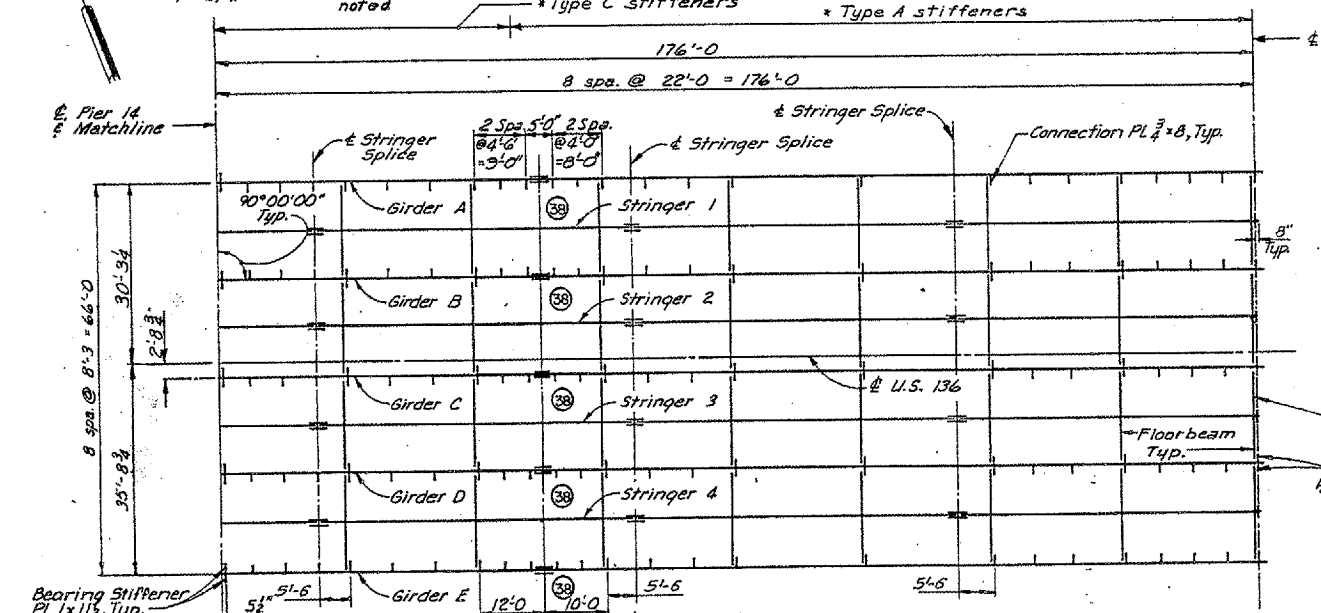 noted
*Type C stiffeners
* Type A stiffeners
176'-0
℄
8 spa. @ 22'-0 = 176'-0
℄ Pier 14
& Matchline
℄ Stringer
Splice
2 Spa.
@4'-6"
=9'-0"
5'-0"
2 Spa.
@4'-0"
=8'-0"
℄ Stringer Splice
℄ Stringer Splice
Connection PL 3/4 x 8, Typ.
90°00'00"
Typ.
Girder A
38
Stringer 1
8"
Typ.
8 spa. @ 8'-3 = 66'-0
30'-3 1/4
2'-8 3/4
35'-8 3/4
Girder B
38
Stringer 2
℄ U.S. 136
Girder C
38
Stringer 3
Floorbeam
Typ.
Girder D
38
Stringer 4
Bearing Stiffener
PL 1x11½, Typ.
5½"
5'-6
Girder E
12'-0
38
10'-0
5'-6
5'-6